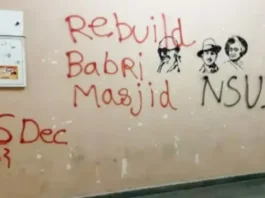 Rebuild
Babri
Masjid NSU
6 Dec